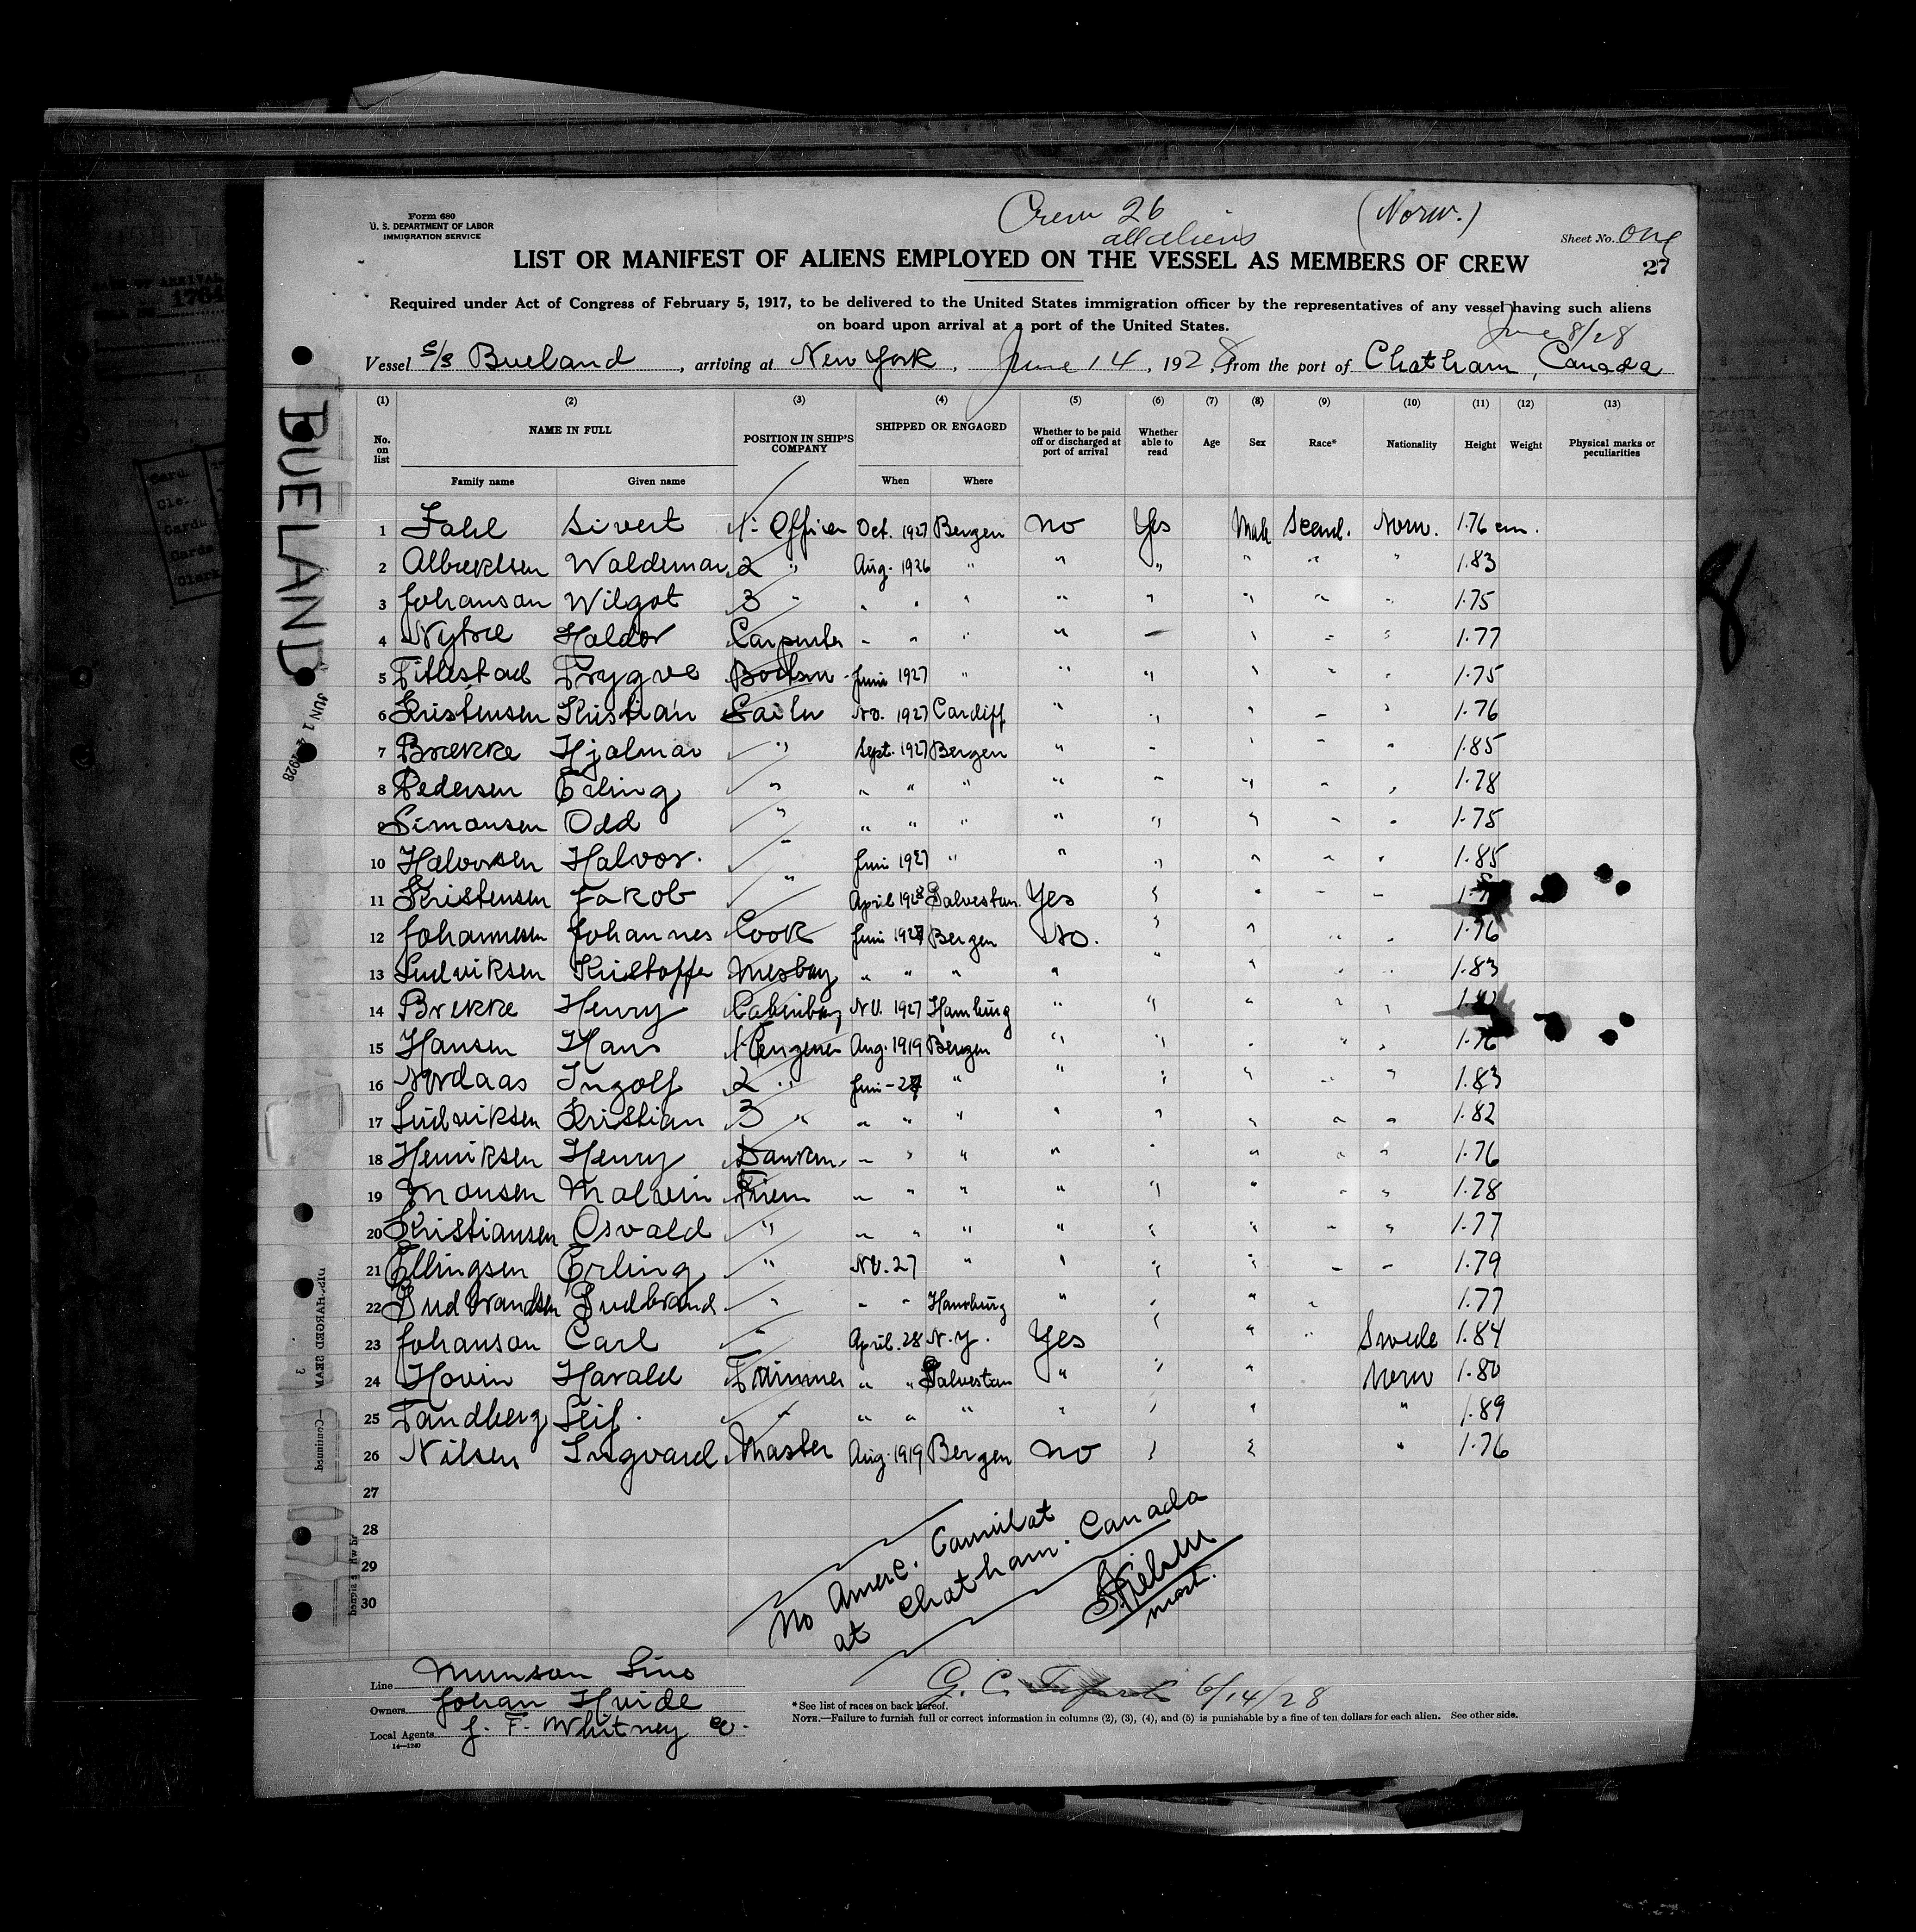 Form 680
U. S. DEPARTMENT OF LABOR
IMMIGRATION SERVICE
Crew 26 (Norw.)
all aliens
Sheet No. One
27
LIST OR MANIFEST OF ALIENS EMPLOYED ON THE VESSEL AS MEMBERS OF CREW
Required under Act of Congress of February 5, 1917, to be delivered to the United States immigration officer by the representatives of any vessel having such aliens
on board upon arrival at a port of the United States.
June 8/28
Vessel S/S Bueland, arriving at New York, June 14, 1928, from the port of Chatham, Canada
(1) (2) (3) (4) (5) (6) (7) (8) (9) (10) (11) (12) (13)
No. on list NAME IN FULL POSITION IN SHIP'S COMPANY SHIPPED OR ENGAGED Whether to be paid off or discharged at port of arrival Whether able to read Age Sex Race* Nationality Height Weight Physical marks or peculiarities
Family name Given name When Where
1 Fahl Sivert 1: Officer Oct. 1927 Bergen no Yes Male Scand. Norw. 1.76 cm.
2 Albrektsen Waldemar 2 " Aug. 1926 " " " " " " 1.83
3 Johanson Wilgot 3 " " " " " " " " " 1.75
4 Haldor Carpenter " " " " " " " " 1.77
5 Tittlestad Trygve Boatsm. Juni 1927 " " " " " " 1.75
6 Kristensen Kristian Sailer No. 1927 Cardiff " " " " " 1.76
7 Brekke Hjalmar " Sept. 1927 Bergen " " " " " 1.85
8 Pedersen Erling " " " " " " " " " 1.78
9 Simonsen Odd " " " " " " " " " 1.75
10 Halvorsen Halvor. " Juni 1927 " " " " " " 1.85
11 Kristensen Jakob " April 1928 Galveston. Yes " " " "
12 Johannesen Johannes Cook Juni 1927 Bergen No. " " " " 1.76
13 Ludviksen Kristoffer Mesboy " " " " " " " " 1.83
14 Brekke Henry Cabinboy NV. 1927 Hamburg " " " " "
15 Hansen Hans 1. Engener Aug. 1919 Bergen " " " " " 1.76
16 Nordaas Ingolf 2 " Juni-27 " " " " " " 1.83
17 Ludviksen Kristian 3 " " " " " " " " " 1.82
18 Henriksen Henry Dankm. " " " " " " " " 1.76
19 Monsen Malvin Firem " " " " " " " " 1.78
20 Kristiansen Osvald " " " " " " " " " 1.77
21 Ellingsen Erling " NV. 27 " " " " " " 1.79
22 Gudbrandsen Gudbrand " " " Hamburg " " " " 1.77
23 Johanson Carl " April. 28 N. Y. Yes " " " Swede 1.84
24 Hovin Harald Trimmer " " Galveston " " " Norw 1.80
25 Tandberg Leif. " " " " " " " " 1.89
26 Nilsen Ingvard Master Aug. 1919 Bergen no " " " 1.76
27
28
29
30
No Amerc. Consulat
at Chatham. Canada
Nielsen
mast.
Line Munson Line
Owners Johan Hvide
Local Agents J. F. Whitney Co.
14—1240
G. C. 6/14/28
*See list of races on back hereof.
NOTE.—Failure to furnish full or correct information in columns (2), (3), (4), and (5) is punishable by a fine of ten dollars for each alien. See other side.
BUELAND
JUN 14 1928
8